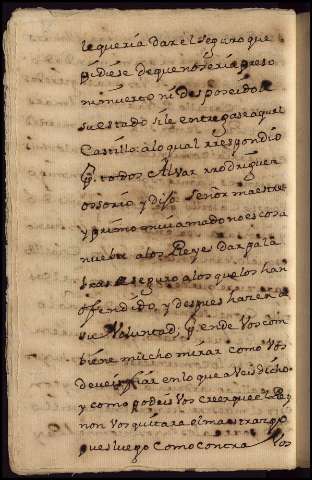 le queria dar el seguro que
pidiese de que no seria preso
ni muerto ni desposeido de
su estado si le entregase aquel
Castillo: a lo qual rrespondio
por todos Alvar rrodriguez
ossorio y dijo Señor maestre
y primo mui amado no es cosa
nueba a los Reyes dar pala
bras seguro a los que los han
offendido, y despues hazer a
su Voluntad, por ende Vos com
biene mucho mirar como Vos
deveis fiar en lo que aveis dicho
y como podeis Vos creer que el Rey
non Vos quitara el maestrazgo
pues luego como contra Vos